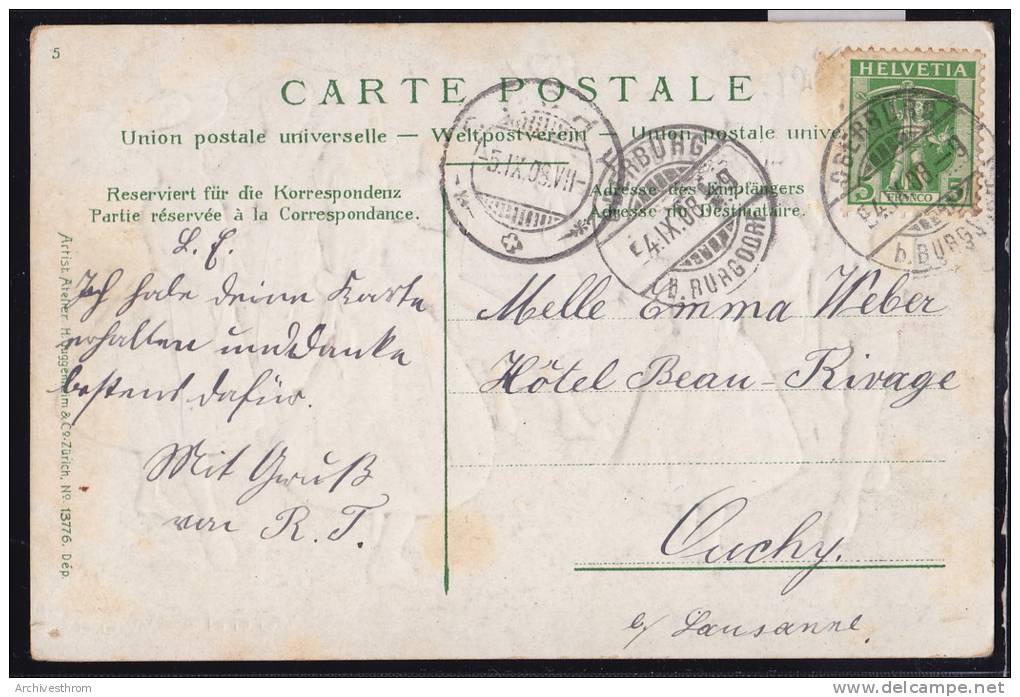 5
CARTE POSTALE
Union postale universelle — Weltpostverein — Union postale unive
Reserviert für die Korrespondenz
Partie réservée à la Correspondance.
Adresse des Empfängers
Adresse du Destinataire.
HELVETIA
5 5
FRANCO
OBERBURG
b. BURGDORF
-5.IX.08.VII-
OBERBURG
4.IX.08.-9
b. BURGDORF
L. E.
Ich habe deine Karte
erhalten und danke
bestens dafür.
Mit Gruß
von R. T.
Melle Emma Weber
Hôtel Beau-Rivage
Ouchy.
b/ Lausanne.
Artist. Atelier H. Guggenheim & Co. Zürich, No. 13776. Dép.
Archivesthrom
delcampe.net